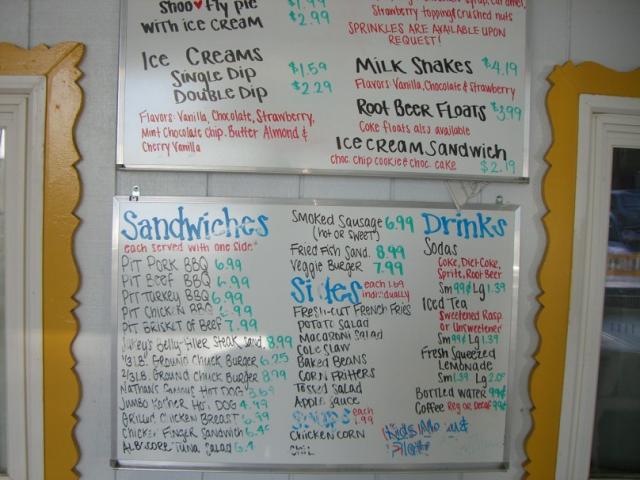 Shoo Fly pie $1.99
with ice cream $2.99
Ice Creams
Single Dip $1.59
Double Dip $2.29
Flavors: Vanilla, Chocolate, Strawberry,
Mint Chocolate chip, Butter Almond &
Cherry Vanilla
Strawberry topping & crushed nuts
SPRINKLES ARE AVAILABLE UPON
REQUEST!
Milk Shakes $4.19
Flavors: Vanilla, Chocolate & Strawberry
Root Beer Floats $3.99
Coke floats also available
Ice cream Sandwich
choc. chip cookie & choc. cake $2.19
Sandwiches
each served with one side*
Pit Pork BBQ 6.99
Pit Beef BBQ 6.99
Pit Turkey BBQ 6.99
Pit Chicken BBQ 6.99
Pit Brisket of Beef 7.99
Belly-Filler Steak Sand. 8.99
1/3 lb. Ground Chuck Burger 6.25
2/3 lb. Ground Chuck Burger 8.99
Nathan's Famous Hot Dog
Jumbo Kosher Hot Dog
Grilled Chicken Breast
Chicken Finger Sandwich
Albacore Tuna Salad
Smoked Sausage 6.99
(hot or sweet)
Fried Fish Sand. 8.99
Veggie Burger 7.99
Sides each 1.69
individually
Fresh-cut French Fries
Potato Salad
Macaroni Salad
Cole Slaw
Baked Beans
Corn Fritters
Tossed Salad
Apple Sauce
Soups each
1.99
Chicken Corn
Drinks
Sodas
Coke, Diet-Coke,
Sprite, Root Beer
Sm 99¢ Lg 1.39
Iced Tea
Sweetened Rasp.
or Unsweetened
Sm 99¢ Lg 1.39
Fresh Squeezed
Lemonade
Sm 1.59 Lg
Bottled Water 99¢
Coffee Reg or Decaf 99¢
Kids